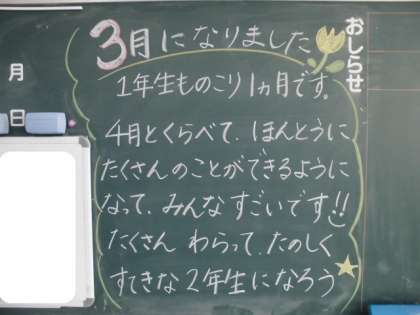 おしらせ
3月になりました
1年生ものこり1ヵ月です。
4月とくらべて、ほんとうに
たくさんのことができるように
なって、みんなすごいです!!
たくさん わらって、たのしく
すてきな2年生になろう
月
日